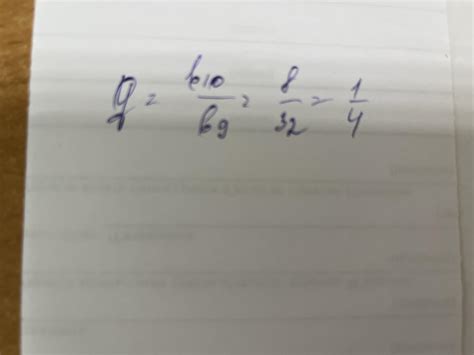 q = b10/b9 = 8/32 = 1/4